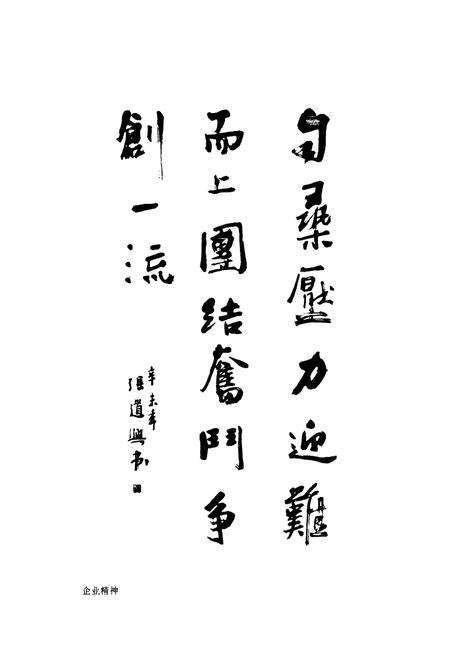 自尋壓力迎難
而上團結奮鬥爭
創一流
辛未年
張道興书
企业精神